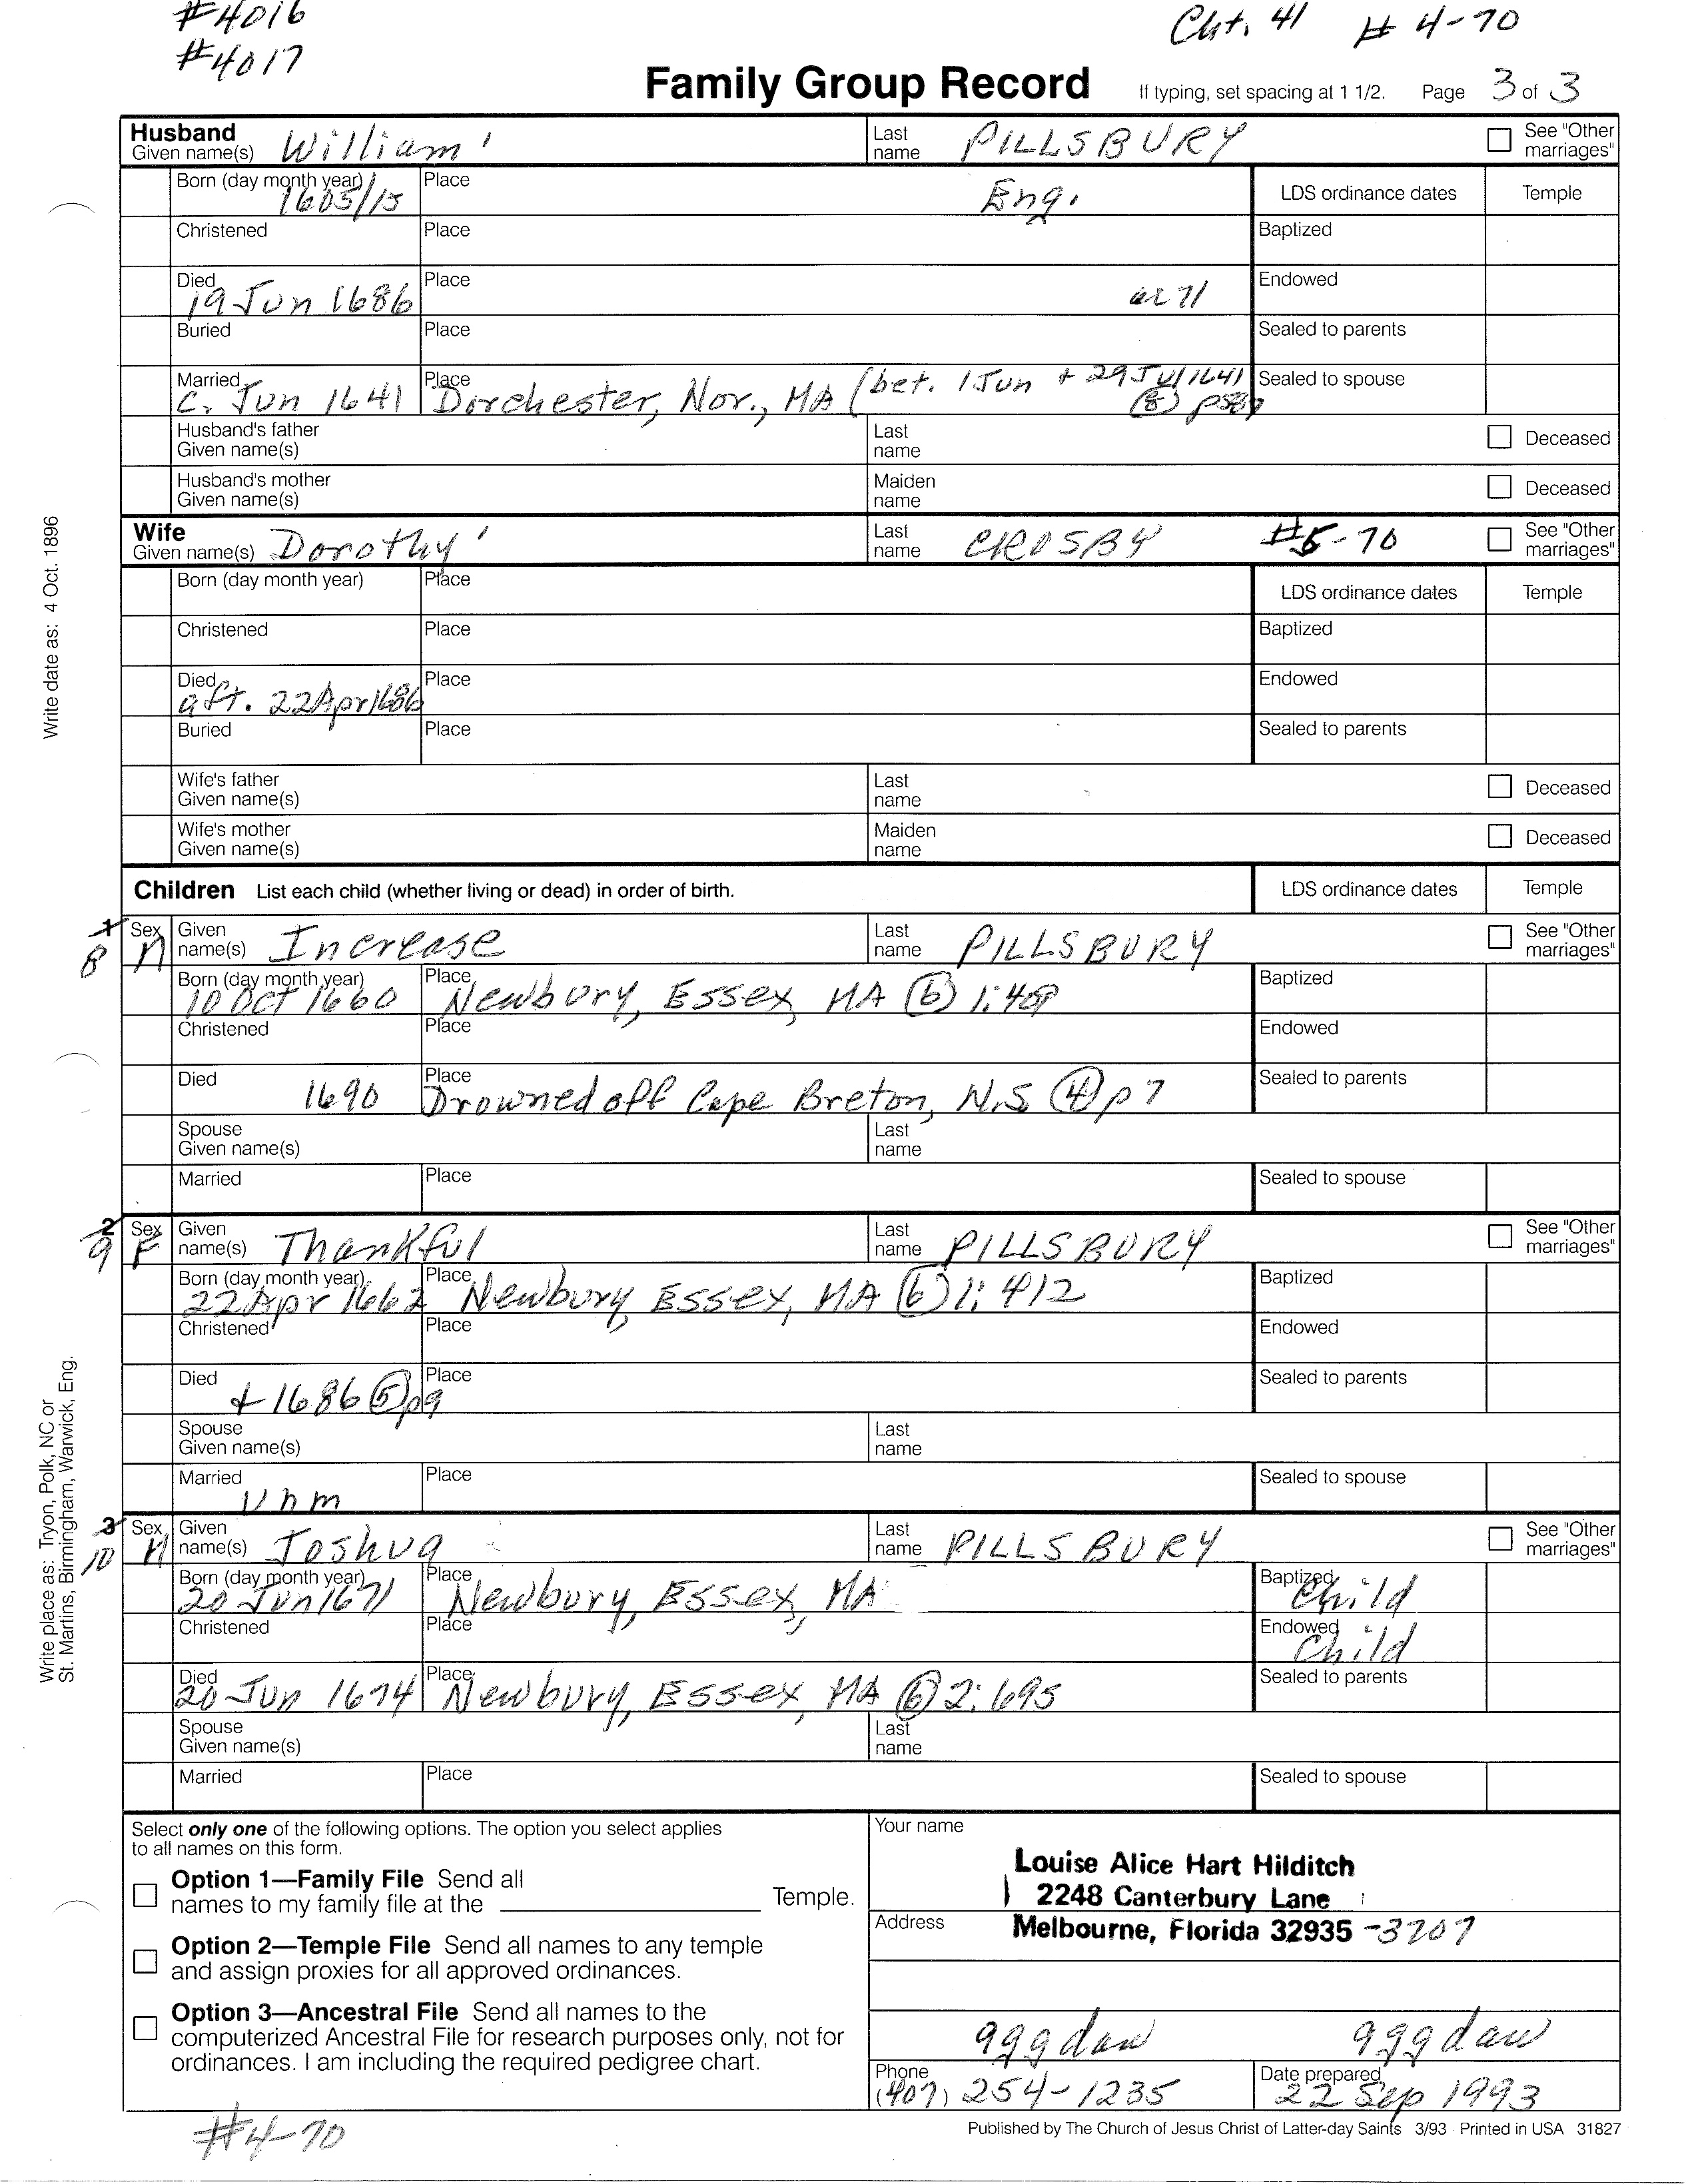 #4016
#4017
Cht. 41 # 4-70
Family Group Record If typing, set spacing at 1 1/2. Page 3 of 3
Husband
Given name(s) William' Last name PILLSBURY See "Other marriages"
Born (day month year) 1605/15 Place Eng. LDS ordinance dates Temple
Christened Place Baptized
Died 19 Jun 1686 Place ae 71 Endowed
Buried Place Sealed to parents
Married c. Jun 1641 Place Dorchester, Nor., MA (bet. 1 Jun + 29 Jul 1641 Sealed to spouse
(8)
Husband's father Given name(s) Last name Deceased
Husband's mother Given name(s) Maiden name Deceased
Wife
Given name(s) Dorothy' Last name CROSBY #5-70 See "Other marriages"
Born (day month year) Place LDS ordinance dates Temple
Christened Place Baptized
Died aft. 22 Apr 1686 Place Endowed
Buried Place Sealed to parents
Wife's father Given name(s) Last name Deceased
Wife's mother Given name(s) Maiden name Deceased
Children List each child (whether living or dead) in order of birth. LDS ordinance dates Temple
1 8 Sex M Given name(s) Increase Last name PILLSBURY See "Other marriages"
Born (day month year) 10 Oct 1660 Place Newbury, Essex, MA (6) Baptized
Christened Place Endowed
Died 1690 Place Drowned off Cape Breton, N.S (4) p 7 Sealed to parents
Spouse Given name(s) Last name
Married Place Sealed to spouse
2 9 Sex F Given name(s) Thankful Last name PILLSBURY See "Other marriages"
Born (day month year) 22 Apr 1662 Place Newbury, Essex, MA (6) 1: 412 Baptized
Christened Place Endowed
Died + 1686 (5) p9 Place Sealed to parents
Spouse Given name(s) Last name
Married Unm Place Sealed to spouse
3 10 Sex M Given name(s) Joshua Last name PILLSBURY See "Other marriages"
Born (day month year) 20 Jun 1671 Place Newbury, Essex, MA Baptized Child
Christened Place Endowed Child
Died 20 Jun 1674 Place Newbury, Essex, MA (6) 2: 695 Sealed to parents
Spouse Given name(s) Last name
Married Place Sealed to spouse
Select only one of the following options. The option you select applies
to all names on this form.
Option 1—Family File Send all
names to my family file at the Temple.
Option 2—Temple File Send all names to any temple
and assign proxies for all approved ordinances.
Option 3—Ancestral File Send all names to the
computerized Ancestral File for research purposes only, not for
ordinances. I am including the required pedigree chart.
Your name
Louise Alice Hart Hilditch
2248 Canterbury Lane
Address Melbourne, Florida 32935 -3207
gggdaw gggdaw
Phone (407) 254-1235 Date prepared 22 Sep 1993
#4-70
Published by The Church of Jesus Christ of Latter-day Saints 3/93 Printed in USA 31827
Write date as: 4 Oct. 1896
Write place as: Tryon, Polk, NC or
St. Martins, Birmingham, Warwick, Eng.